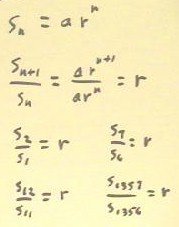 Sₙ = arⁿ
Sₙ₊₁/Sₙ = arⁿ⁺¹/arⁿ = r
S₂/S₁ = r   S₇/S₆ = r
S₁₂/S₁₁ = r   S₁₃₅₇/S₁₃₅₆ = r